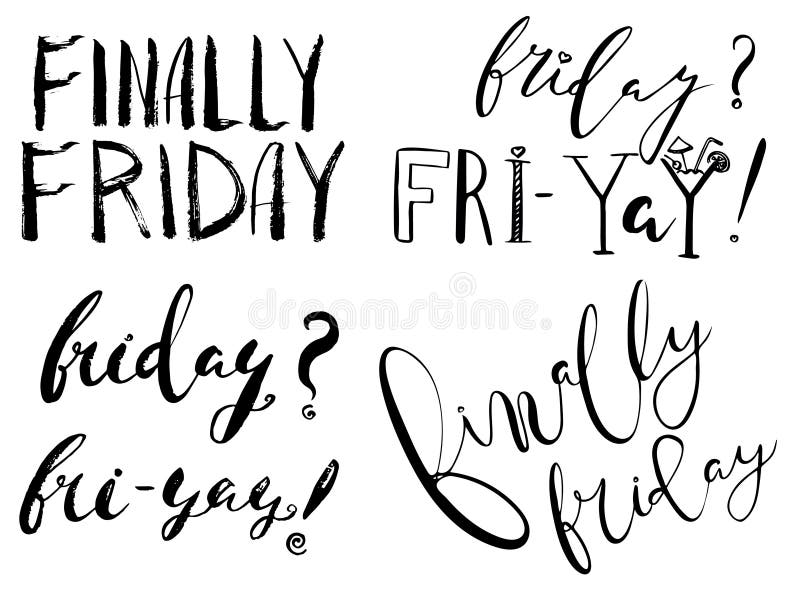 FINALLY
FRIDAY
friday?
FRI-YaY!
friday?
fri-yay!
finally
friday
dreamstime